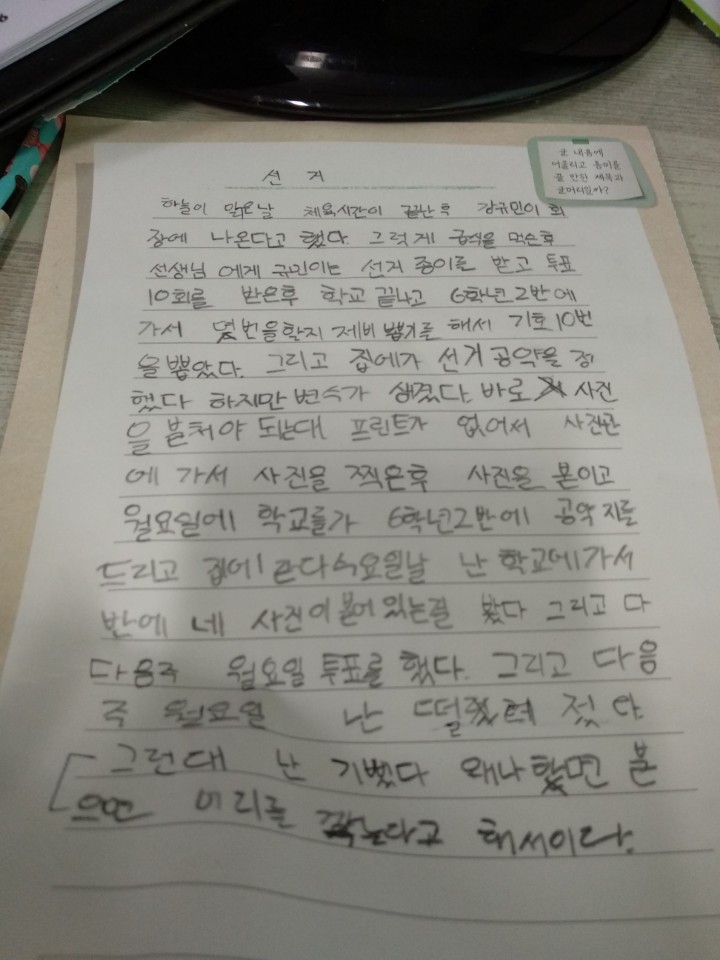 글 내용에
어울리고 흥미를
끌 만한 제목과
선거
하늘이 맑은날 체육시간이 끝난후 강규민이 회
장에 나온다고 했다. 그렇게 급식을 먹은후
선생님 에게 규민이는 선거 종이를 받고 투표
10회를 받은후 학교 끝나고 6학년2반에
가서 몇번을할지 제비 뽑기를 해서 기호10번
을뽑았다. 그리고 집에가 선거공약을 정
했다 하지만 변수가 생겼다. 바로 사진
을 붙처야 되는대 프린트가 없어서 사진관
에 가서 사진을 찍은후 사진을 본이고
월요일에 학교를가 6학년2반에 공약지를
드리고 집에 수요일날 난 학교에가서
반에 네 사진이 붙어있는걸 봤다 그리고 다
다음주 월요일 투표를 했다. 그리고 다음
주 월요일 난
그런대 난 기뻤다 왜나하면 붙
으면 머리를 깍는다고 해서이다.